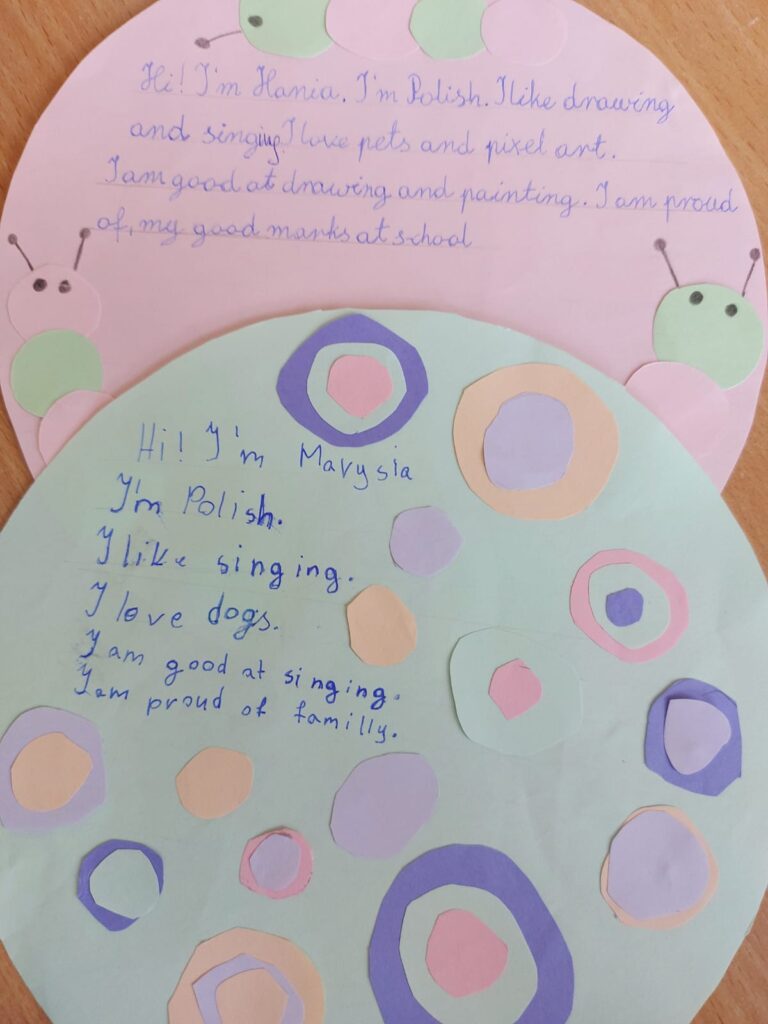 Hi! I'm Hania. I'm Polish. I like drawing
and singing. I love pets and pixel art.
I am good at drawing and painting. I am proud
of, my good marks at school
Hi! I'm Marysia
I'm Polish.
I like singing.
I love dogs.
I am good at singing.
I am proud of familly.